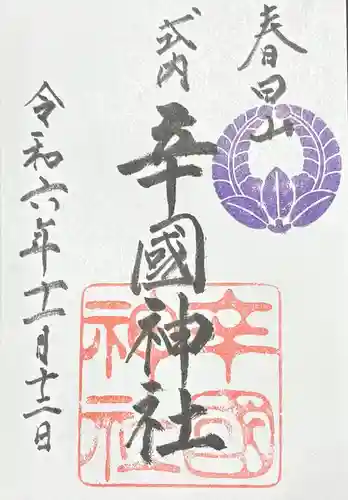 春日山
式内
辛國神社
令和六年十一月十三日
辛國
神社